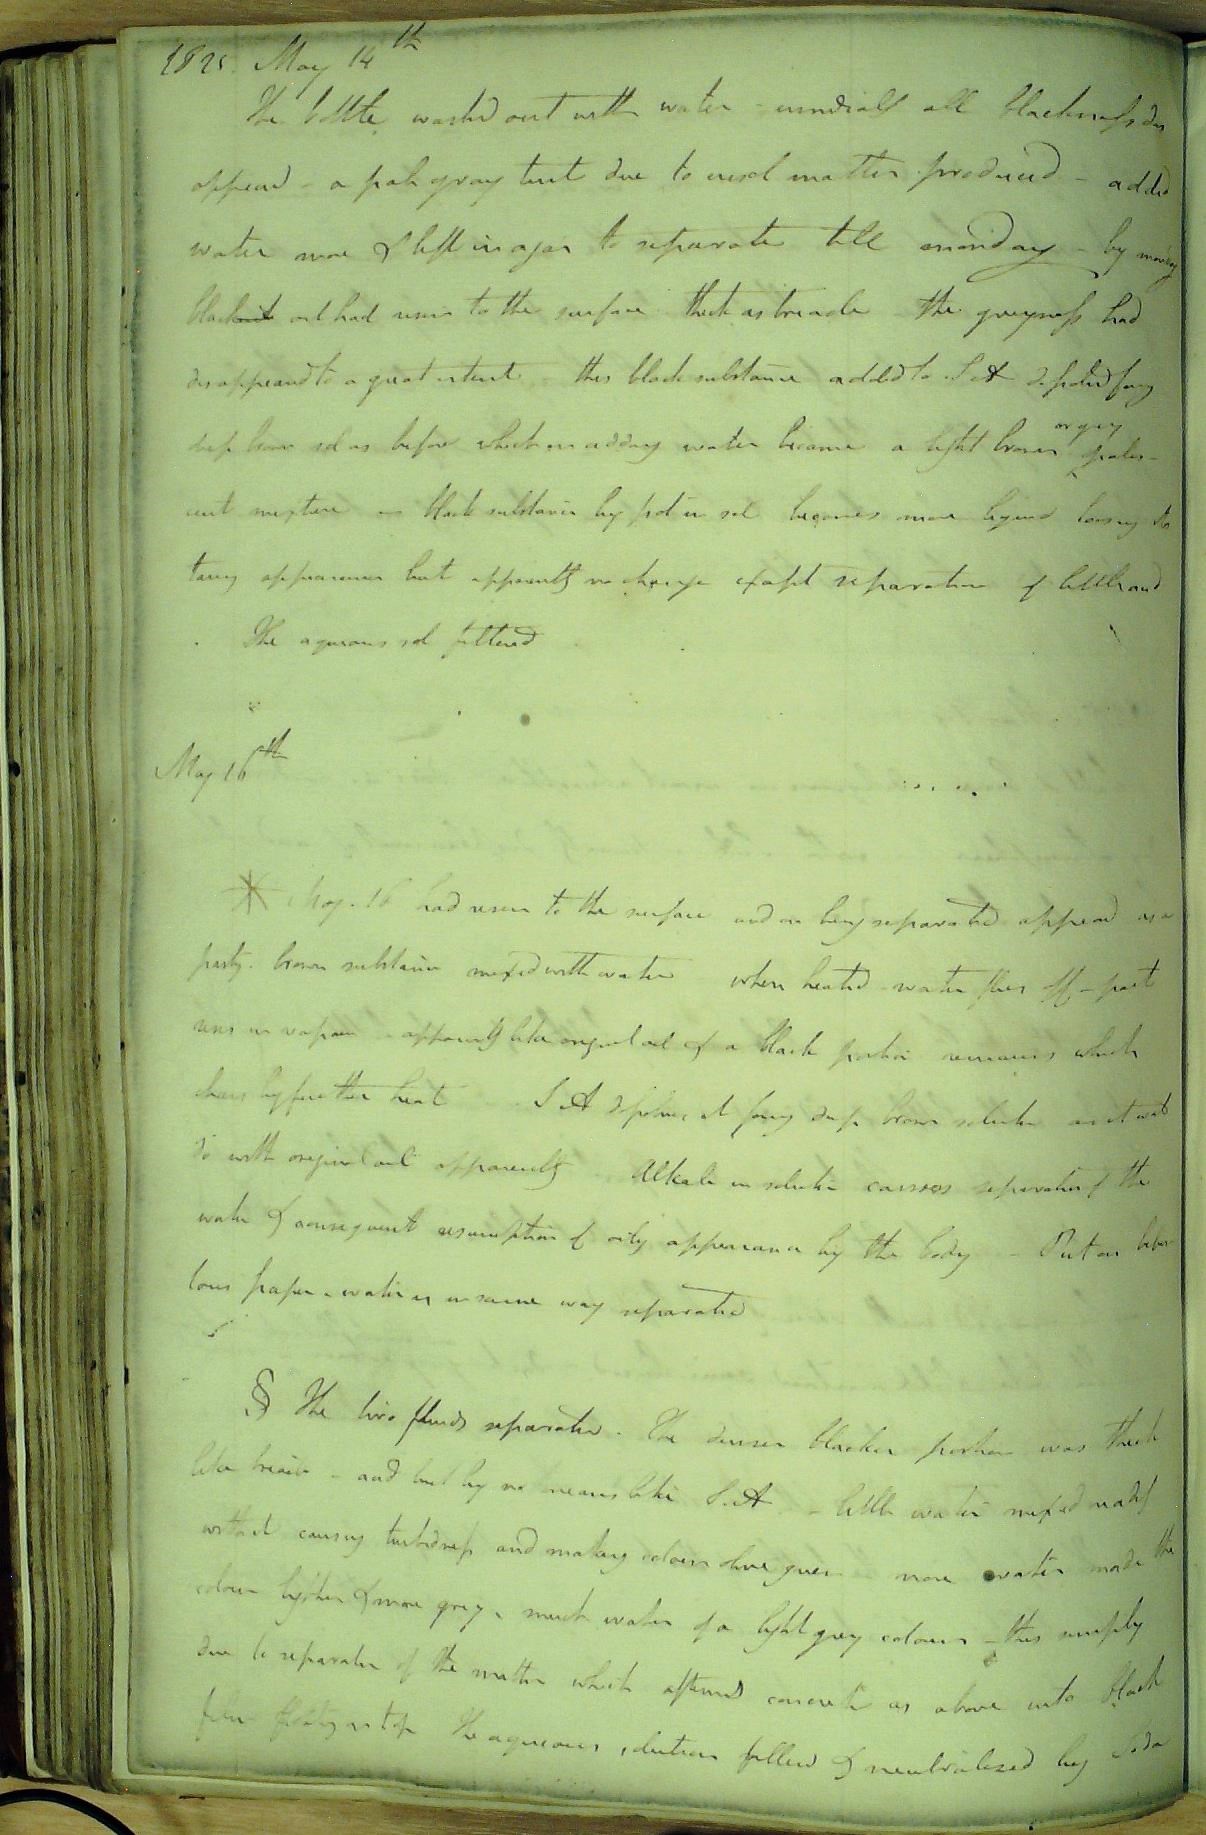 1825. May 14th
The bottle washed out with water - immediately all blackness dis
appeared - a pale gray tint due to insol matter produced - added
water more & left in a jar to separate till monday - by monday
black oil had risen to the surface thick as treacle the greyness had
disappeared to a great extent - this black substance added to S A dissolved forming
deep brown sol as before which on adding water became a light brown or grey opales-
cent mixture - black substance by pot in sol becomes more liquid loosing its
tarry appearance but apparently no change except separation of little acid
The aqueous sol filtered
May 16th
* May. 16 had risen to the surface and on being separated appeared as a
pasty brown substance mixed with water when heated - water flies off - part
rises in vapour apparently like original oil & a black portion remains which
chars by further heat S A dissolves it forming deep brown solution as it would
do with original oil apparently Alkali in solution causes separation of the
water & consequent resumption of oily appearance by the body - Put on bibu
lous paper - water is in same way separated
§ The two fluids separated. The denser blacker portion was thick
like treacle - acid but by no means like S. A - little water mixed readily
with it causing turbidness and making colour olive green more water made the
colour lighter & more grey - much water of a light grey colour - this simply
due to separation of the matter which afterwards concreted as above into black
film floating on top The aqueous solution filtered & neutralized by Soda